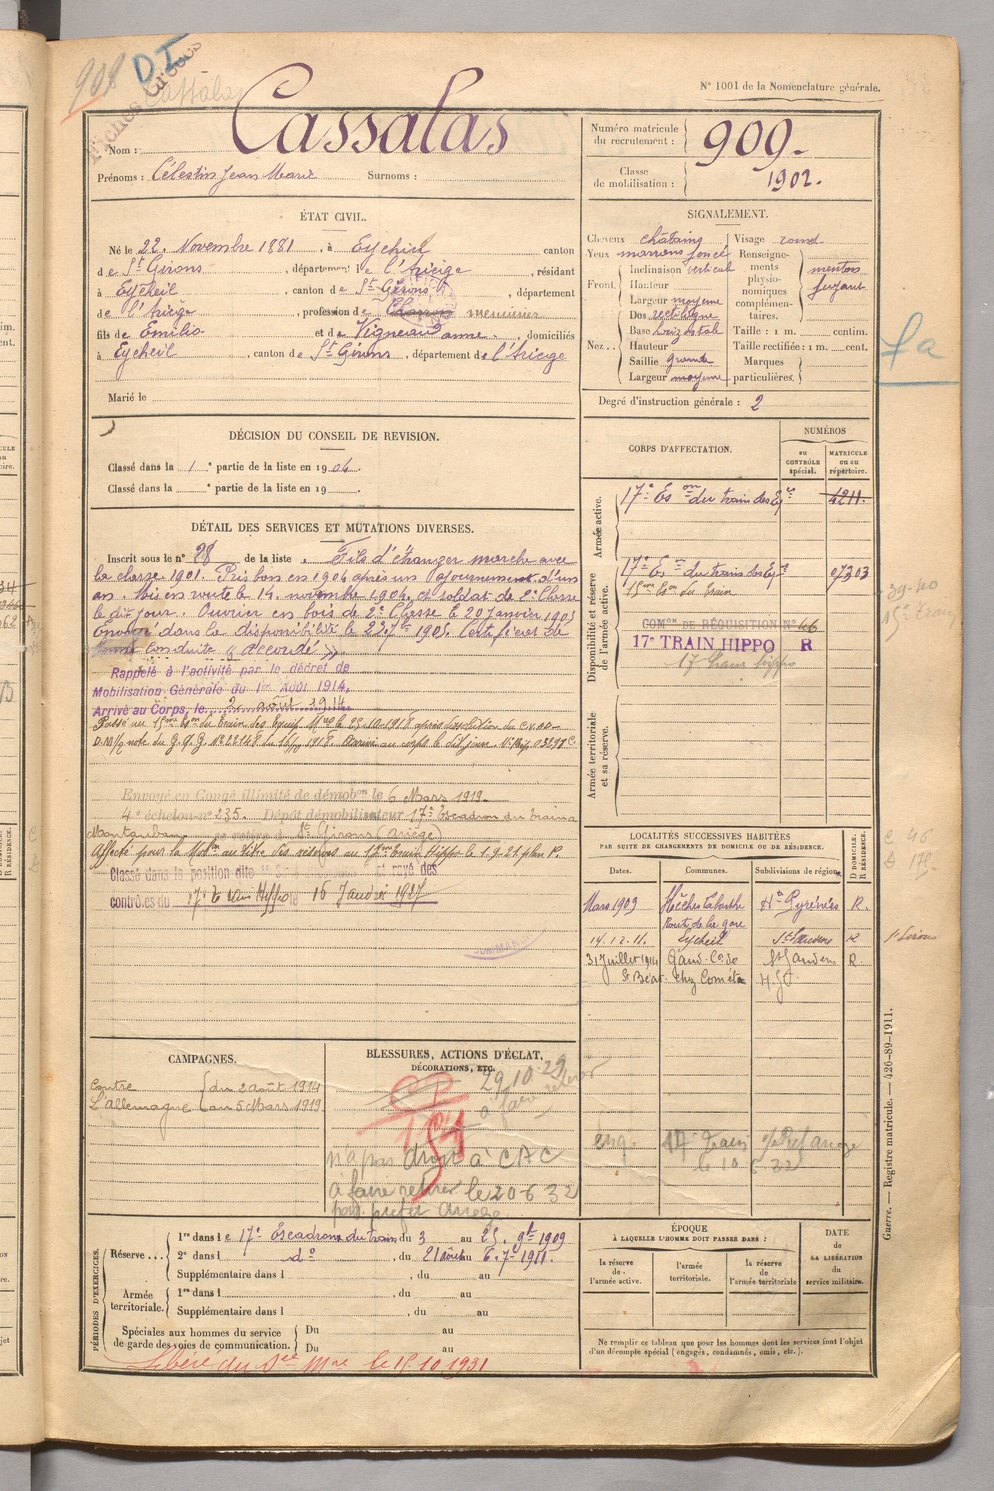 908 DI
Fiches Gr
Cassalas
N° 1001 de la Nomenclature générale.
Nom : Cassalas
Prénoms : Célestin Jean Marie Surnoms :
Numéro matricule du recrutement : 909.
Classe de mobilisation : 1902.
ÉTAT CIVIL.
Né le 22 Novembre 1881, à Eycheil canton
de St Girons, département de l'Ariège, résidant
à Eycheil, canton de St Girons, département
de l'Ariège, profession de Charron menuisier
fils de Emilio et de Vigneau anne, domiciliés
à Eycheil, canton de St Girons, département de l'Ariège
Marié le
SIGNALEMENT.
Cheveux châtains
Yeux marrons foncé
Front. Inclinaison verticale
Hauteur
Largeur moyenne
Nez.. Dos rectiligne
Base horizontale
Hauteur
Saillie grande
Largeur moyenne
Visage rond
Renseignements physionomiques complémentaires. menton fuyant
Taille : 1 m. centim.
Taille rectifiée : 1 m. cent.
Marques particulières.
Degré d'instruction générale : 2
fa
DÉCISION DU CONSEIL DE REVISION.
Classé dans la 1e partie de la liste en 1904.
Classé dans la e partie de la liste en 19
DÉTAIL DES SERVICES ET MUTATIONS DIVERSES.
Inscrit sous le n° 28 de la liste. Fils d'étranger marche avec
la classe 1901. Pris bon en 1904 après un ajournement d'un
an. Mis en route le 14 novembre 1904, et soldat de 2e Classe
le dit jour. Ouvrier en bois de 2e Classe le 20 Janvier 1905
Envoyé dans la disponibilité le 23 7bre 1905. Certificat de
bonne Conduite « Accordé »
Rappelé à l'activité par le décret de
Mobilisation Générale du 1er Août 1914.
Arrivé au Corps, le 2 août 1914.
Passé au 15me Eson du Train des Equip. Mres le 25-10-1918 après dissolution du
Envoyé en Congé illimité de démobon le 6 Mars 1919.
4e échelon n° 235. Dépôt démobilisateur 17e Escadron du train à
Montauban se retire à St Girons (Ariège)
Affecté pour la Mobon au titre des réserves au 17me Train Hippo le 1-9-21 plan P.
Classé dans la position dite et rayé des
contrôles du 17e Train Hippo le 16 Janvier 1927
CORPS D'AFFECTATION.
NUMÉROS
AU CONTRÔLE spécial.
MATRICULE ou au répertoire.
Armée active.
17e Eson du train des Eq 4211.
Disponibilité et réserve de l'armée active.
17e Eson du train des Eq 07303
15me Eson du train
COMon DE RÉQUISITION N° 46
17e TRAIN HIPPO R
17 train hippo
Armée territoriale et sa réserve.
39-40
15e Train
LOCALITÉS SUCCESSIVES HABITÉES
PAR SUITE DE CHANGEMENTS DE DOMICILE OU DE RÉSIDENCE.
Dates. Communes. Subdivisions de région. D DOMICILE. R RÉSIDENCE.
Mars 1909 Hèches Labarthe Htes Pyrénées R.
Route de la gare
14.12.11. Eycheil St Gaudens R St Girons
31 Juillet 1914 Gaud. Con de St Gaudens R
St Béat chez Comet H. G
17 Train
le 10 6 32
CAMPAGNES.
Contre L'allemagne { du 2 août 1914
au 5 Mars 1919.
BLESSURES, ACTIONS D'ÉCLAT,
DÉCORATIONS, ETC.
29-10-29
à faire
n'a pas droit à CAC
à faire retirer le 20 6 32
par préfet Ariège
PÉRIODES D'EXERCICES.
Réserve... 1re dans le 17e Escadron du train, du 3 au 25 9bre 1909
2e dans l do, du 21 août au 6. 7bre 1911.
Supplémentaire dans l , du au
Armée territoriale. 1re dans l , du au
Supplémentaire dans l , du au
Spéciales aux hommes du service de garde des voies de communication. Du au
Du au
Libéré du Sce Mre le 15.10.1931
ÉPOQUE
À LAQUELLE L'HOMME DOIT PASSER DANS :
la réserve de l'armée active.
l'armée territoriale.
la réserve de l'armée territoriale
DATE de LA LIBÉRATION du service militaire.
Ne remplir ce tableau que pour les hommes dont les services font l'objet
d'un décompte spécial (engagés, condamnés, omis, etc.).
Guerre. — Registre matricule. — 426-89-1911.